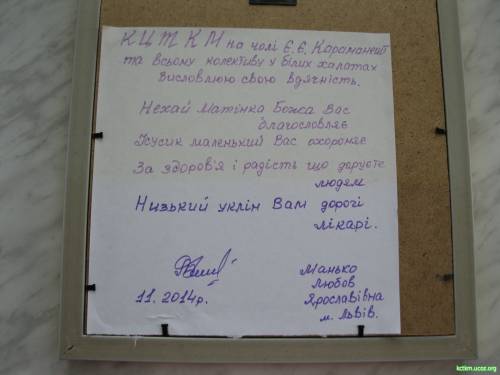 КЦТКМ на чолі Є.Є. Караманешт
та всьому колективу у білих халатах
висловлюю свою вдячність.
Нехай Матінка Божа Вас
благословляє
Ісусик маленький Вас охороняє
За здоров'я і радість що даруєте
людям
Низький уклін Вам дорогі
лікарі.
11. 2014р.
Манько
Любов
Ярославівна
м. Львів.
kctkm.ucoz.org